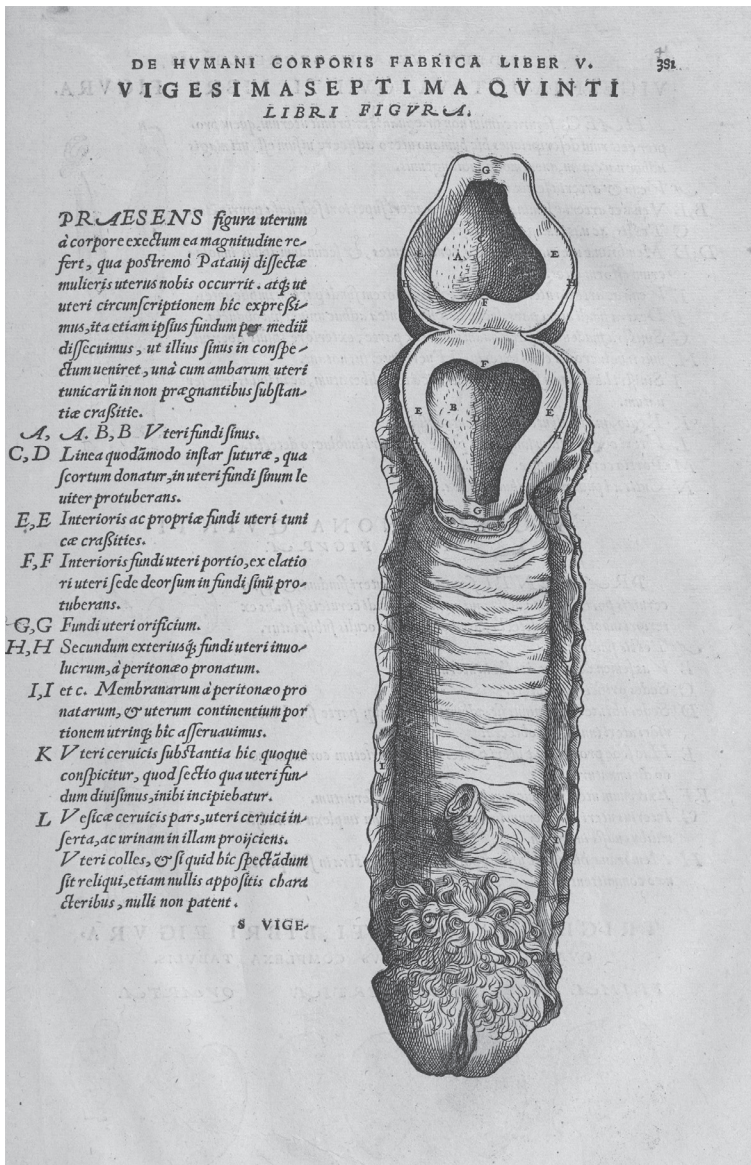 DE HVMANI CORPORIS FABRICA LIBER V. 381
VIGESIMASEPTIMA QVINTI
LIBRI FIGVRA.
PRAESENS figura uterum
à corpore exectum ea magnitudine re-
fert, qua postremò Patauij dissectæ
mulieris uterus nobis occurrit. atq; ut
uteri circunscriptionem hic expreßi-
mus, ita etiam ipsius fundum per mediũ
dissecuimus, ut illius sinus in conspe-
ctum ueniret, unà cum ambarum uteri
tunicarũ in non prægnantibus substan-
tiæ craßitie.
A, A. B, B Vteri fundi sinus.
C, D Linea quodãmodo instar suturæ, qua
scortum donatur, in uteri fundi sinum le
uiter protuberans.
E, E Interioris ac propriæ fundi uteri tuni
cæ craßities.
F, F Interioris fundi uteri portio, ex elatio
ri uteri sede deorsum in fundi sinũ pro-
tuberans.
G, G Fundi uteri orificium.
H, H Secundum exteriusq; fundi uteri inuo-
lucrum, à peritonæo pronatum.
I, I et c. Membranarum à peritonæo pro
natarum, & uterum continentium por
tionem utrinq; hic asseruauimus.
K Vteri ceruicis substantia hic quoque
conspicitur, quod sectio qua uteri fun-
dum diuisimus, inibi incipiebatur.
L Vesicæ ceruicis pars, uteri ceruici in-
serta, ac urinam in illam proijciens.
Vteri colles, & si quid hic spectãdum
sit reliqui, etiam nullis appositis chara
cteribus, nulli non patent.
S VIGE-
G
A
E
H
F
F
E
B
E
H
G
K
K
L